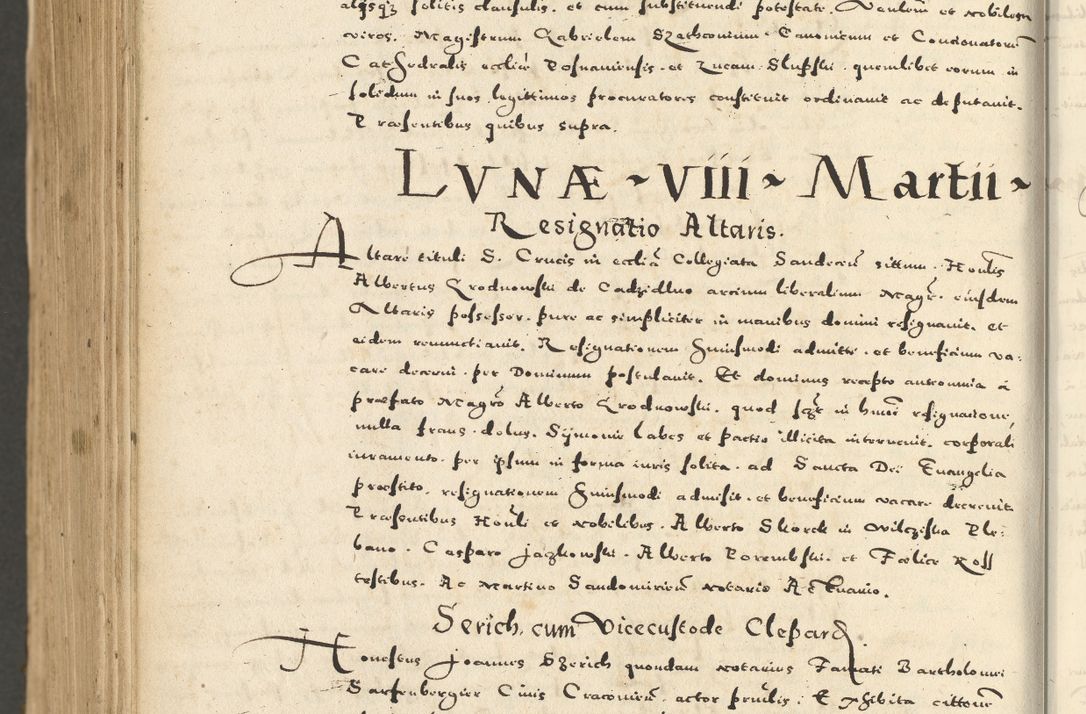 alijsq3 solitis clausulis. et cum substituendi potestate. Venlem et Nobilem
viros. Magistrum Gabrielem Szathconium. Canonicum et Concionatorē
Cathedralis eccliæ Posnaniensis. et Lucam Slupski. quemlibet eorum in
solidum in suos legittimos procuratores constituit ordinauit ac deputauit.
Præsentibus quibus supra.
LVNÆ ~ VIII ~ Martii ~
Resignatio Altaris.
Altare tituli S. Crucis in ecclia Collegiata Sandeceñ sittum. Honlis
Albertus Grodnowski de Cadzidluo arcium liberalium Magr. eiusdem
Altaris possessor. pure ac simpliciter in manibus domini resignauit. et
eidem renunctiauit. Resignationem huiusmodi admitti. et beneficium va:
care decerni. per Dominum postulauit. Et dominus recepto
præfato Magro Alberto Grodnowski. quod in hmōi resignatione,
nulla fraus. dolus. Symonie labes et pactio illicita interuenit. corporali
iuramento. per ipsum in forma iuris solita. ad Sancta Dei Euangelia
præstito. resignationem huiusmodi admisit. et beneficium vacare decreuit.
Præsentibus Honli et Nobilibus. Alberto Skorek in Wilczyska Ple:
bano. Casparo Jazkowski. Alberto Porembski. et Fœlice Ross
testibus. Ac Martino Sandomirieñ Notario Actuario.
Serich. cum Vicecustode Clepard
Honestus Joannes Szerich quondam Notarius Famati Bartholomei
Sarfenbergier Ciuis Cracouieñ. actor prinlis. Exhibita cittone